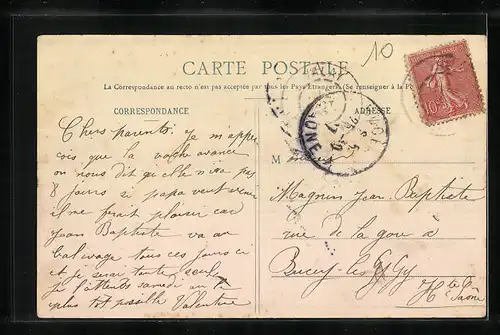 10
CARTE POSTALE
La Correspondance au recto n'est pas acceptée par tous les Pays Étrangers (Se renseigner à la Po
CORRESPONDANCE
ADRESSE
Chers parents Je m'aper
cois que la vache avance
on nous dit qu'elle n'ira pas
8 jours si papa veut venir
il me ferait plaisir car
Jean Baptiste va au
balivage tous ces jours ci
et je serai toute seule
je l'attends samedi au
plus tot possible Valentine
M
Magnin Jean Baptiste
rue de la gare à
Bucey-les-Gy
Hte Saône
10